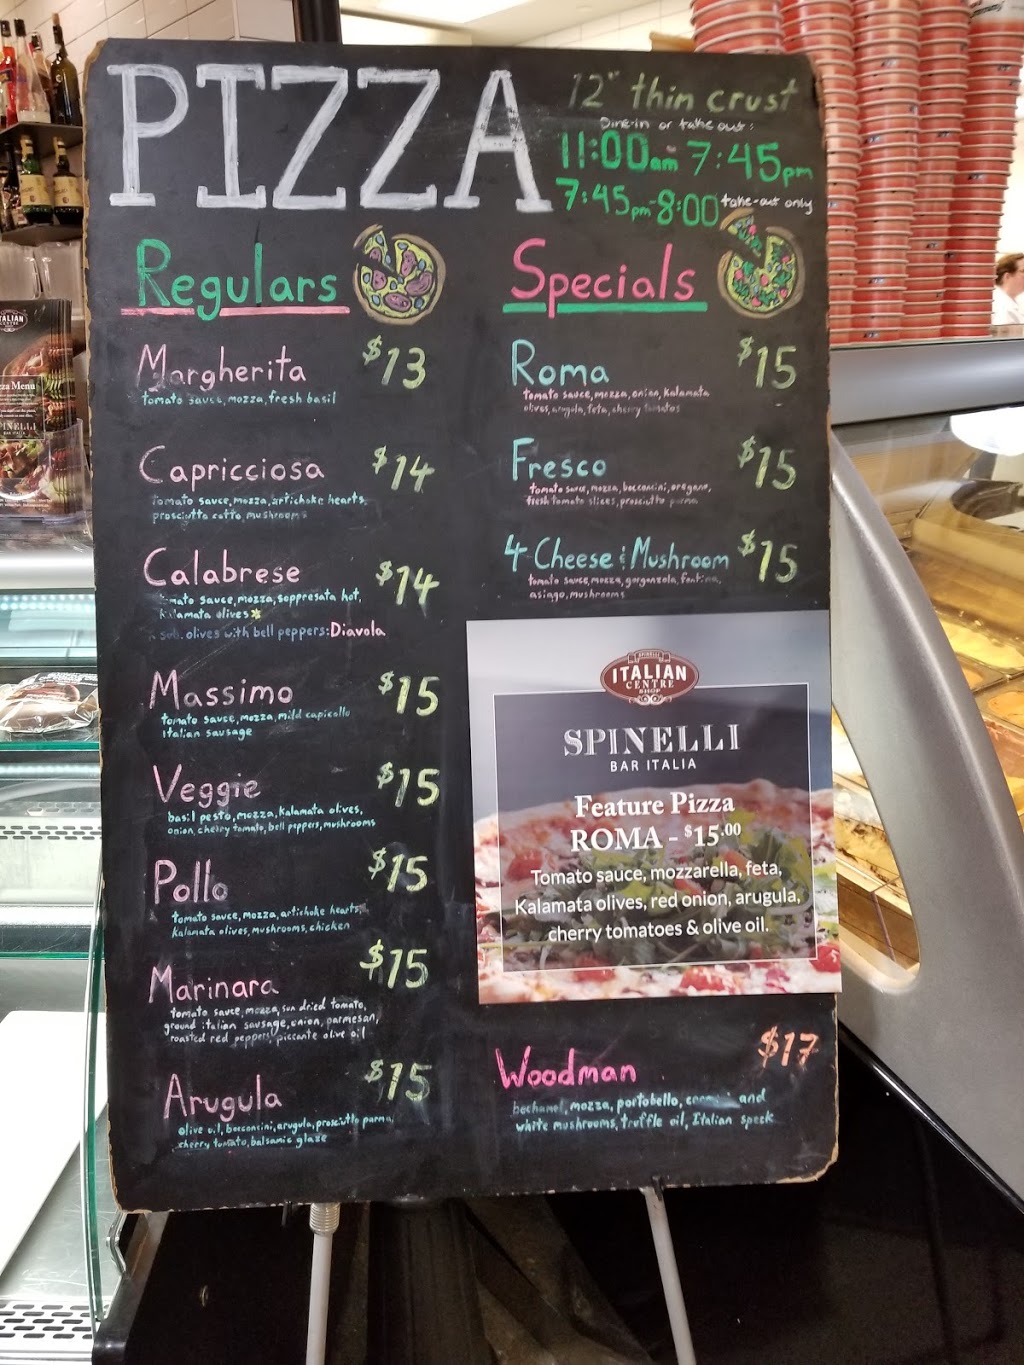 PIZZA
12" thin crust
Dine-in or take out:
11:00am - 7:45pm
7:45pm-8:00 take-out only
Regulars
Margherita $13
tomato sauce, mozza, fresh basil
Capricciosa $14
tomato sauce, mozza, artichoke hearts,
prosciutto cotto, mushrooms
Calabrese $14
tomato sauce, mozza, soppresata hot,
kalamata olives
sub. olives with bell peppers: Diavola
Massimo $15
tomato sauce, mozza, mild capicollo
Italian sausage
Veggie $15
basil pesto, mozza, kalamata olives,
onion, cherry tomato, bell peppers, mushrooms
Pollo $15
tomato sauce, mozza, artichoke hearts,
kalamata olives, mushrooms, chicken
Marinara $15
tomato sauce, mozza, sun dried tomato,
ground italian sausage, onion, parmesan,
roasted red peppers, piccante olive oil
Arugula $15
olive oil, bocconcini, arugula, prosciutto parma,
cherry tomato, balsamic glaze
Specials
Roma $15
tomato sauce, mozza, onion, kalamata
olives, arugula, feta, cherry tomatos
Fresco $15
tomato sauce, mozza, bocconcini, oregano,
fresh tomato slices, prosciutto parma
4 Cheese & Mushroom $15
tomato sauce, mozza, gorgonzola, fontina,
asiago, mushrooms
SPINELLI
ITALIAN
CENTRE
SHOP
SPINELLI
BAR ITALIA
Feature Pizza
ROMA - $15.00
Tomato sauce, mozzarella, feta,
Kalamata olives, red onion, arugula,
cherry tomatoes & olive oil.
Woodman $17
bechamel, mozza, portobello, and
white mushrooms, truffle oil, Italian speck
ITALIAN
CENTRE
Menu
SPINELLI
BAR ITALIA